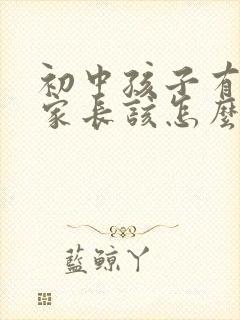 初中孩子有
家長該怎麼
藍鯨丫